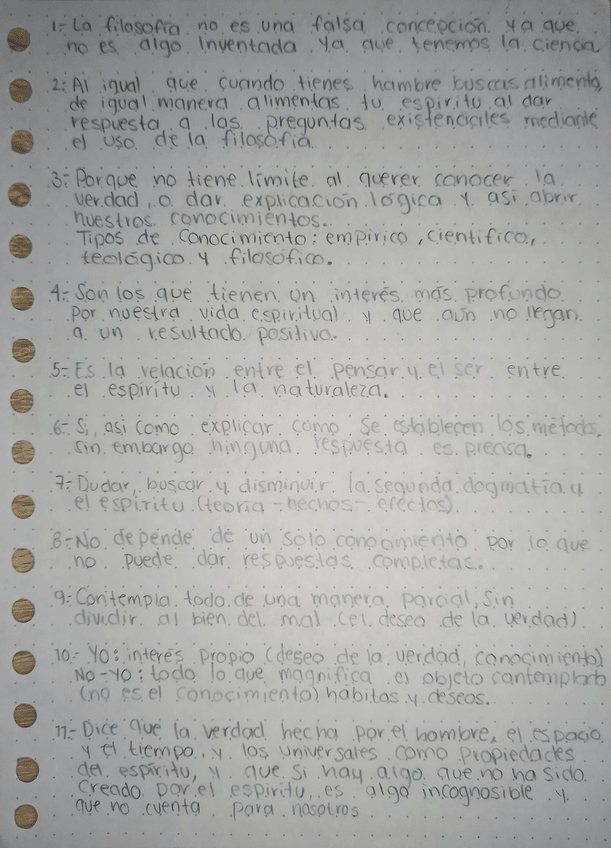 1.- La filosofía no es una falsa concepción ya que
no es algo inventada ya que tenemos la ciencia
2.- Al igual que cuando tienes hambre buscas alimento,
de igual manera alimentas tu espiritu al dar
respuesta a las preguntas existenciales mediante
el uso de la filosofía.
3.- Porque no tiene limite al querer conocer la
verdad, o dar explicación lógica y asi abrir
nuestros conocimientos.
Tipos de conocimiento: empirico, cientifico,
teológico y filosófico.
4.- Son los que tienen un interés más profundo
por nuestra vida espiritual y que aun no llegan
a un resultado positivo.
5.- Es la relación entre el pensar y el ser entre
el espiritu y la naturaleza.
6.- Si, asi como explicar como se establecen los métodos,
sin embargo ninguna respuesta es precisa.
7.- Dudar, buscar y disminuir la segunda dogmatia y
el espiritu (teoria - hechos - efectos).
8.- No depende de un solo conocimiento por lo que
no puede dar respuestas completas.
9.- Contempla todo de una manera parcial, sin
dividir al bien del mal (el deseo de la verdad).
10.- Yo: interés propio (deseo de la verdad, conocimiento)
No-yo: todo lo que magnifica el objeto contemplado
(no es el conocimiento) habitos y deseos.
11.- Dice que la verdad hecha por el hombre, el espacio
y el tiempo, y los universales como propiedades
del espiritu, y que si hay algo que no ha sido
creado por el espiritu, es algo incognosible y
que no cuenta para nosotros